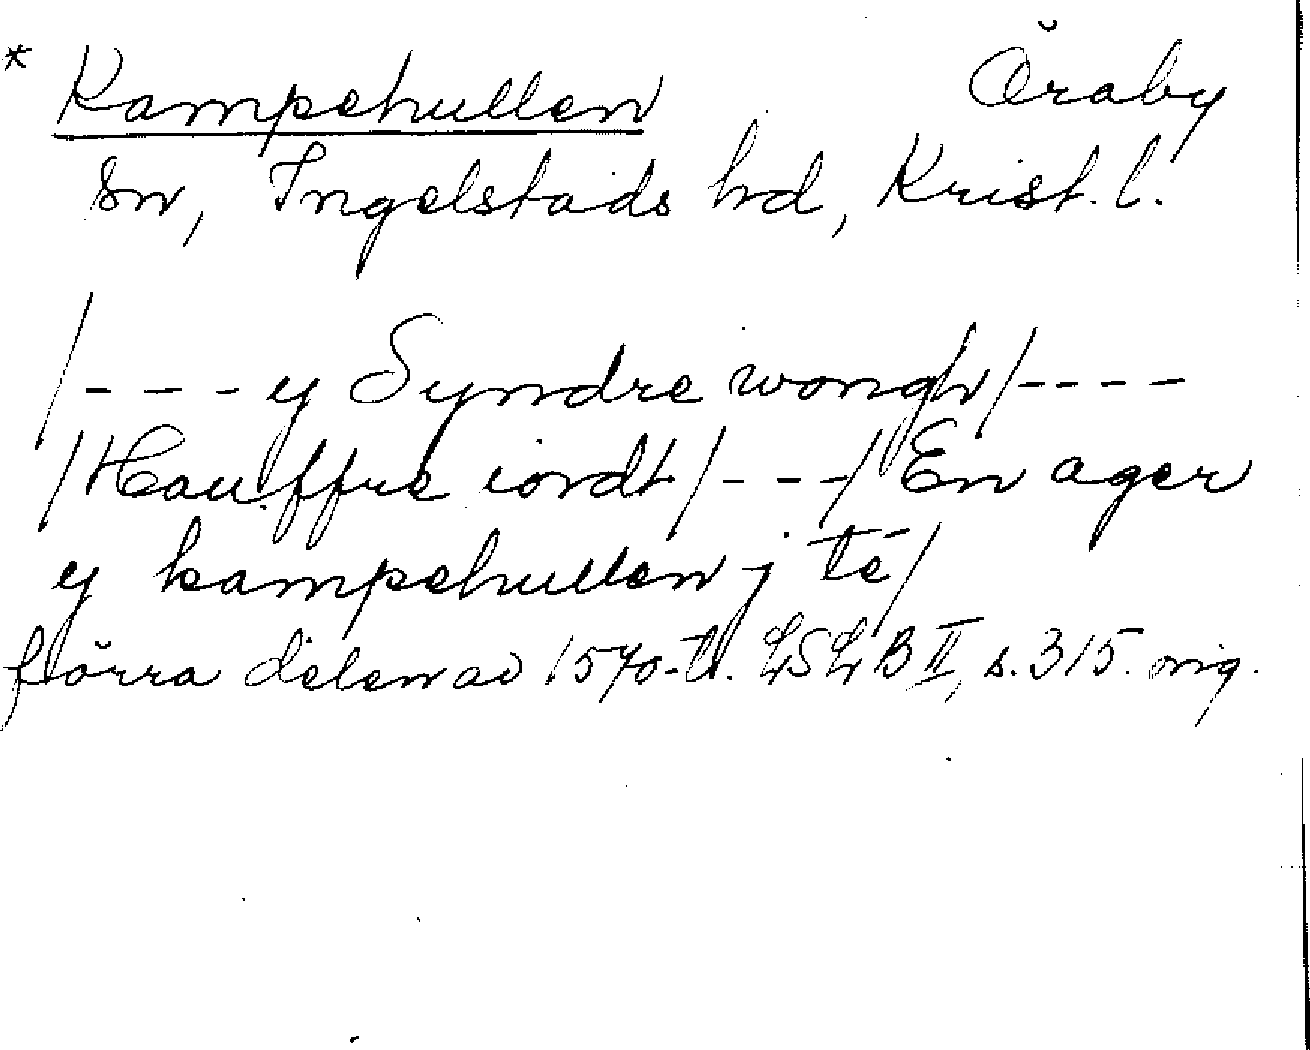 * Kampehullen Öraby
sn, Ingelstads hd, Krist. l.
/---- y Syndre wongh/----
/Hauffre iordt/---/En ager
y kampehullen j té/
förra delen av 1570-t. LSLB II, s. 315. orig.